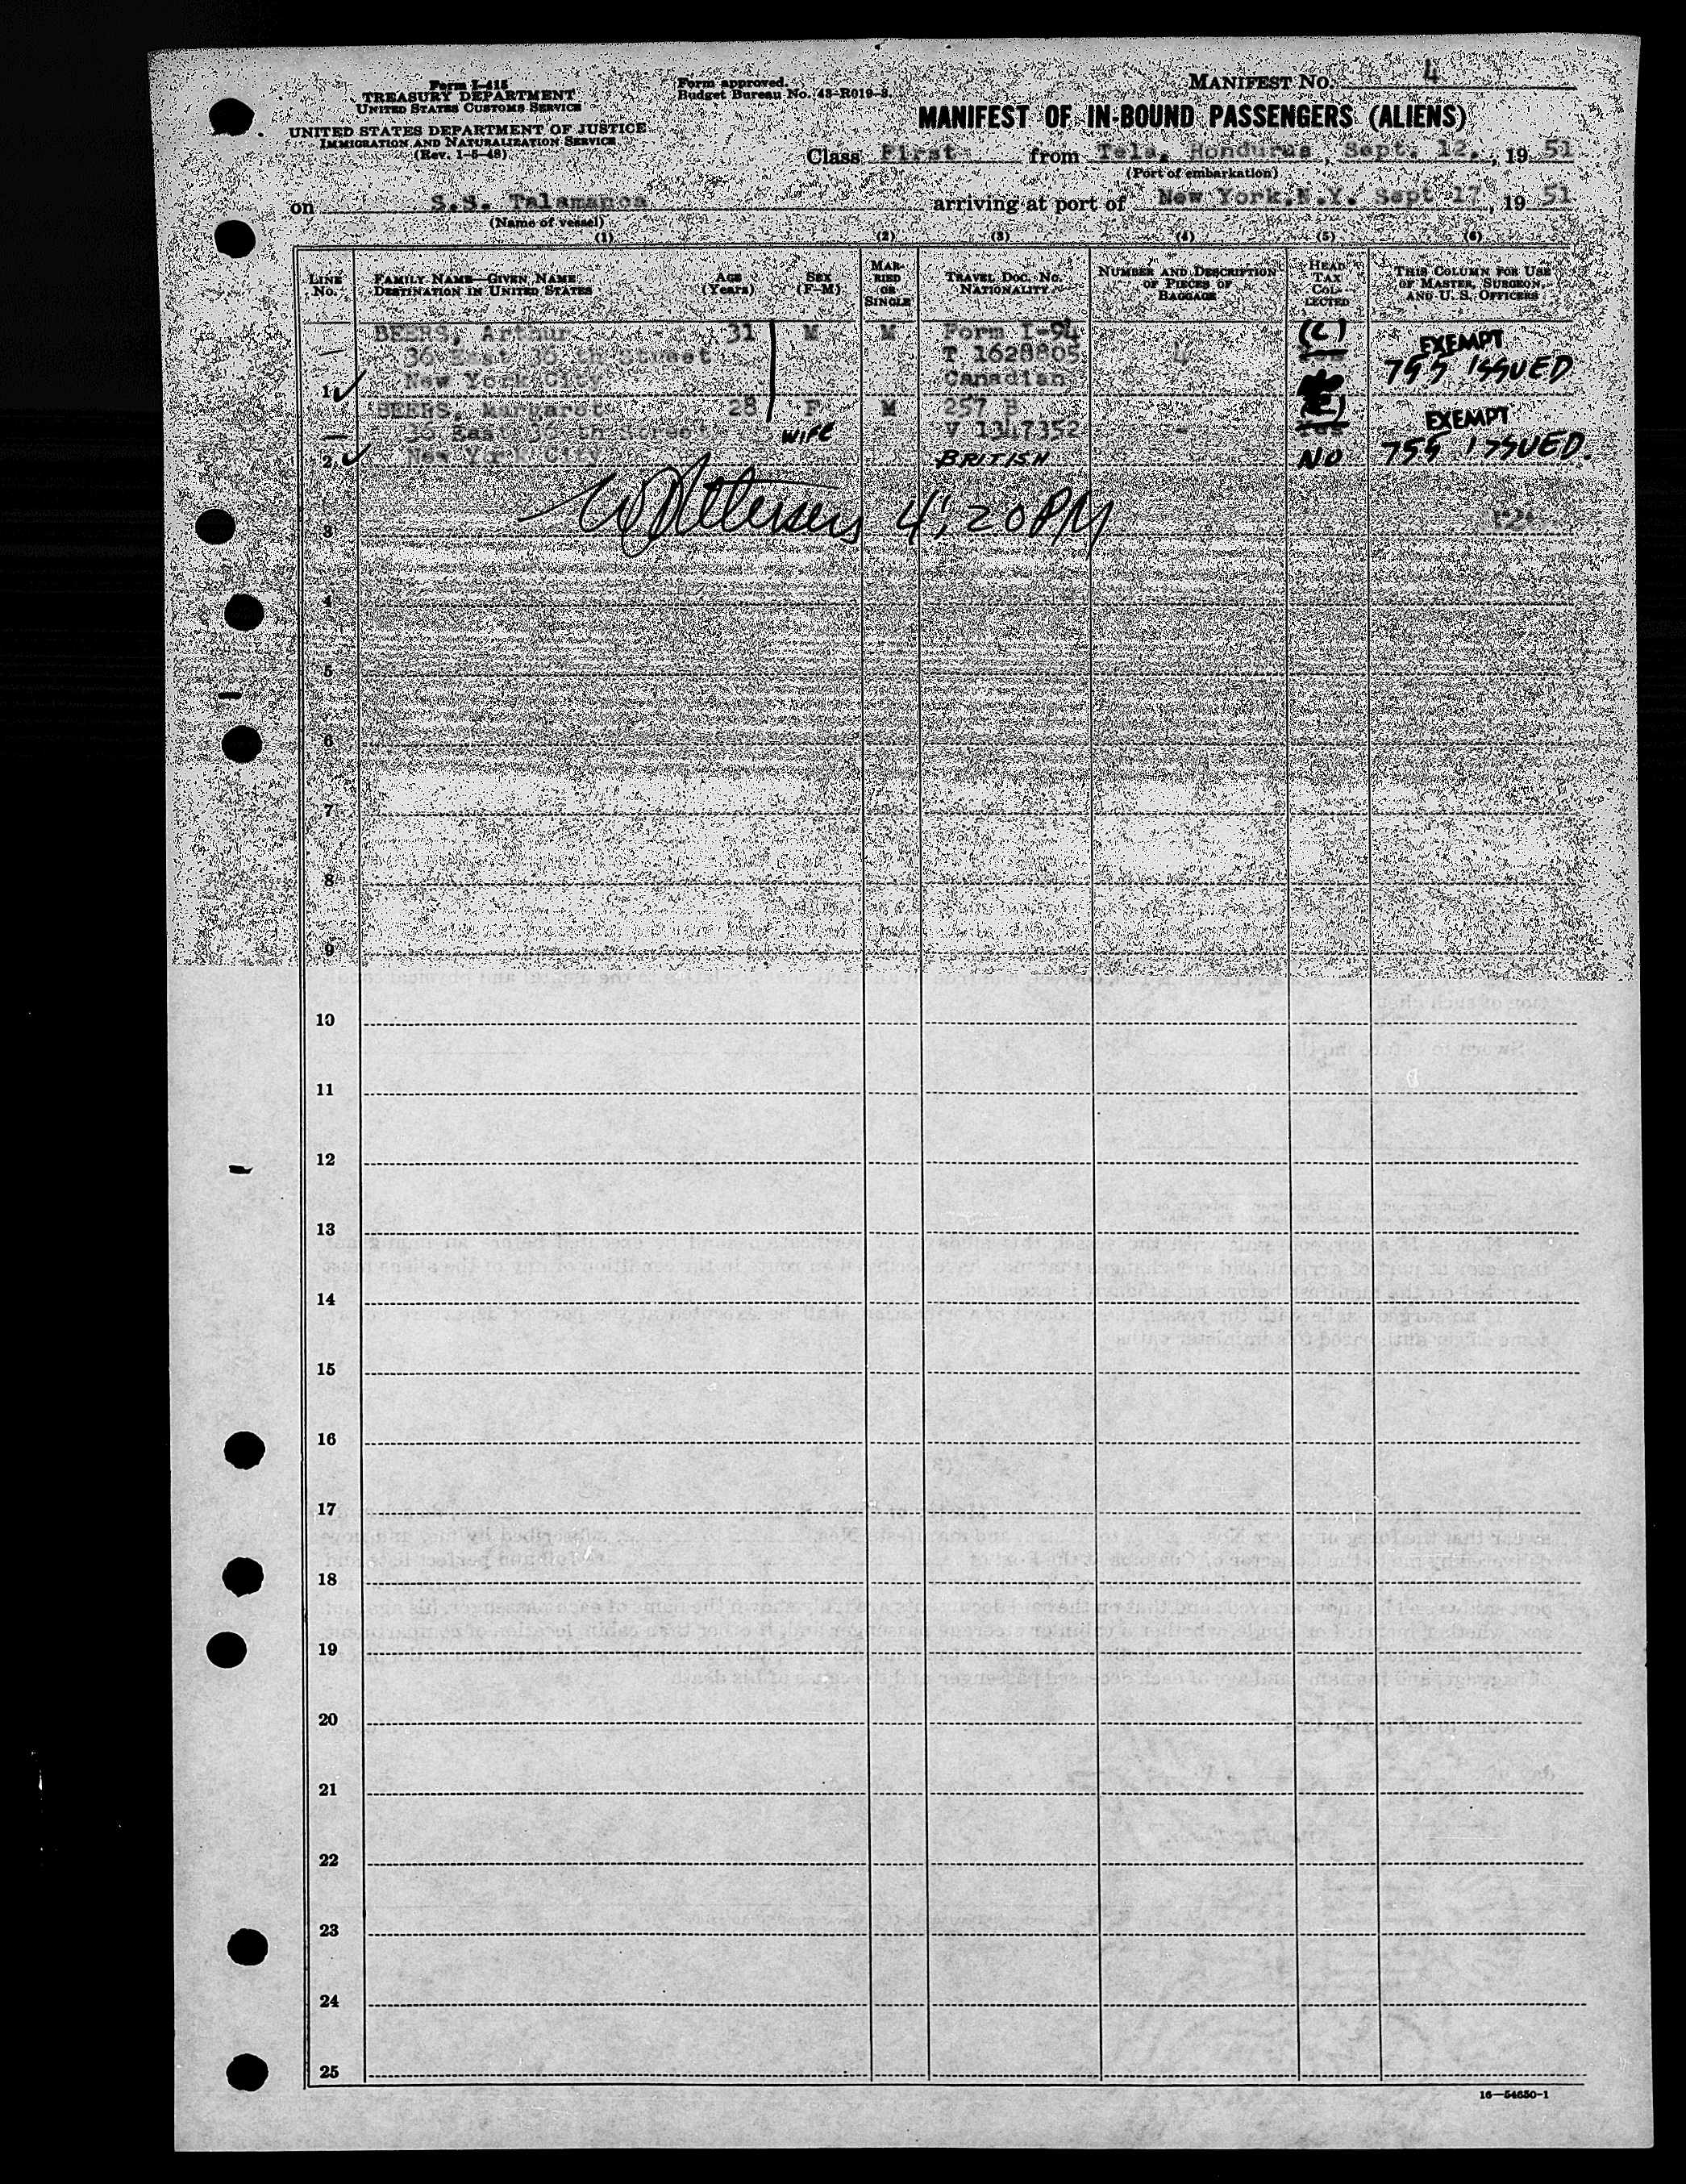 Form I-415
TREASURY DEPARTMENT
UNITED STATES CUSTOMS SERVICE
UNITED STATES DEPARTMENT OF JUSTICE
IMMIGRATION AND NATURALIZATION SERVICE
(Rev. 1-5-48)
Form approved.
Budget Bureau No. 43-R019-3.
MANIFEST NO. 4
MANIFEST OF IN-BOUND PASSENGERS (ALIENS)
Class First from Tela, Honduras, Sept. 12, , 19 51
(Port of embarkation)
on S.S. Talamanca arriving at port of New York, N.Y. Sept 17, 19 51
(Name of vessel)
(1) (2) (3) (4) (5) (6)
LINE No. FAMILY NAME—GIVEN NAME DESTINATION IN UNITED STATES AGE (Years) SEX (F-M) MARRIED OR SINGLE TRAVEL DOC. NO. NATIONALITY NUMBER AND DESCRIPTION OF PIECES OF BAGGAGE HEAD TAX COLLECTED THIS COLUMN FOR USE OF MASTER, SURGEON, AND U. S. OFFICERS
BEERS, Arthur 31 M M Form I-94 (C) EXEMPT
36 East 36 th Street T 1628805 4 755 ISSUED
1 New York City Canadian
BEERS, Margaret 28 F M 257 B EXEMPT
36 East 36 th Street WIFE V 1347352 - Yes 755 ISSUED.
2 New York City BRITISH NO
4:20 PM
3
4
5
6
7
8
9
10
11
12
13
14
15
16
17
18
19
20
21
22
23
24
25
16—54650-1